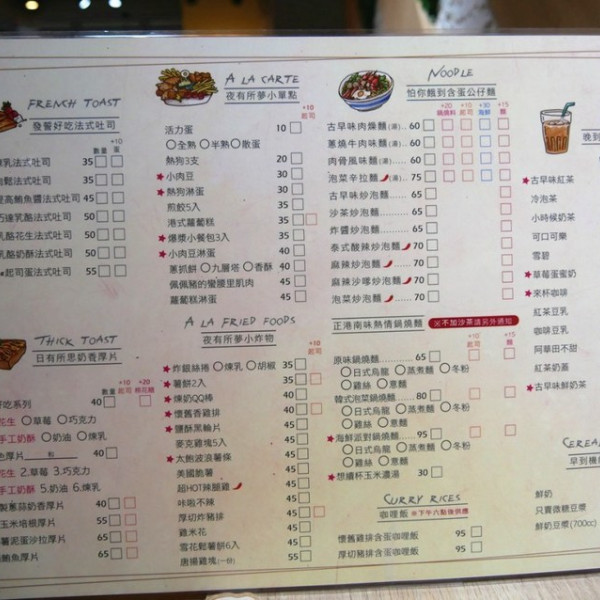 FRENCH TOAST
發誓好吃法式吐司
數量
+10 蛋
乳法式吐司 35
肉鬆法式吐司 35
高鮪魚醬法式吐司 45
巧達乳酪法式吐司 50
乳酪花生法式吐司 50
乳酪奶酥法式吐司 50
起司蛋法式吐司 55
THICK TOAST
日有所思奶香厚片
數量
+10 起司
+20
好吃系列 40
花生 ○草莓 ○巧克力
手工奶酥 ○奶油 ○煉乳
色厚片 點 45
花生 2.草莓 3.巧克力
手工奶酥 5.奶油 6.煉乳
製蔥蒜奶香厚片 40
玉米培根厚片 55
薯泥蛋沙拉厚片 65
鮪魚厚片 65
A LA CARTE
夜有所夢小單點
+10 起司
活力蛋 10
○全熟 ○半熟 ○散蛋
熱狗3支 20
★小肉豆 30
★熱狗淋蛋 30
煎餃5入 35
港式蘿蔔糕 35
★爆漿小餐包3入 40
★小肉豆淋蛋 40
蔥抓餅 ○九層塔 ○香酥 40
佩佩豬的蠻腰里肌肉 45
蘿蔔糕淋蛋 45
A LA FRIED FOODS
夜有所夢小炸物
+10 起司
★炸銀絲捲 ○煉乳 ○胡椒 35
★薯餅2入 35
★煉奶QQ棒 40
★懷舊香雞排 40
★鹽酥黑輪片 45
麥克雞塊5入 45
★太飽波浪薯條 45
美國脆薯 45
超HOT辣腿雞 45
咔啦不辣 45
厚切炸豬排 45
雞米花 45
雪花鬆薯餅6入 45
唐揚雞塊(一份) 55
NOODLE
怕你餓到含蛋公仔麵
+20 鍋燒料
+10 起司
+30 海鮮
+15 麵
古早味肉燥麵(湯) 60
蔥燒牛肉味麵(湯) 60
肉骨風味麵(湯) 60
泡菜辛拉麵(湯) 75
古早味炒泡麵 65
沙茶炒泡麵 65
炸醬炒泡麵 65
泰式酸辣炒泡麵 70
麻辣炒泡麵 70
麻辣沙嗲炒泡麵 70
泡菜炒泡麵 70
正港南味熱情鍋燒麵 ※不加沙茶請另外通知
+10 起司
+15 麵
原味鍋燒麵 65
○日式烏龍 ○蒸煮麵 ○冬粉
○雞絲 ○意麵
韓式泡菜鍋燒麵 80
○日式烏龍 ○蒸煮麵 ○冬粉
○雞絲 ○意麵
★海鮮派對鍋燒麵 95
○日式烏龍 ○蒸煮麵 ○冬粉
○雞絲 ○意麵
★想續杯玉米濃湯 30
CURRY RICES
咖哩飯 ※下午六點後供應
懷舊雞排含蛋咖哩飯 95
厚切豬排含蛋咖哩飯 95
晚到
★古早味紅茶
冷泡茶
小時候奶茶
可口可樂
雪碧
★草莓蛋蜜奶
★來杯咖啡
紅茶豆乳
咖啡豆乳
阿華田不甜
紅茶奶蓋
★古早味鮮奶茶
CEREA
早到穗
鮮奶
只賣微糖豆漿
鮮奶豆漿(700cc)